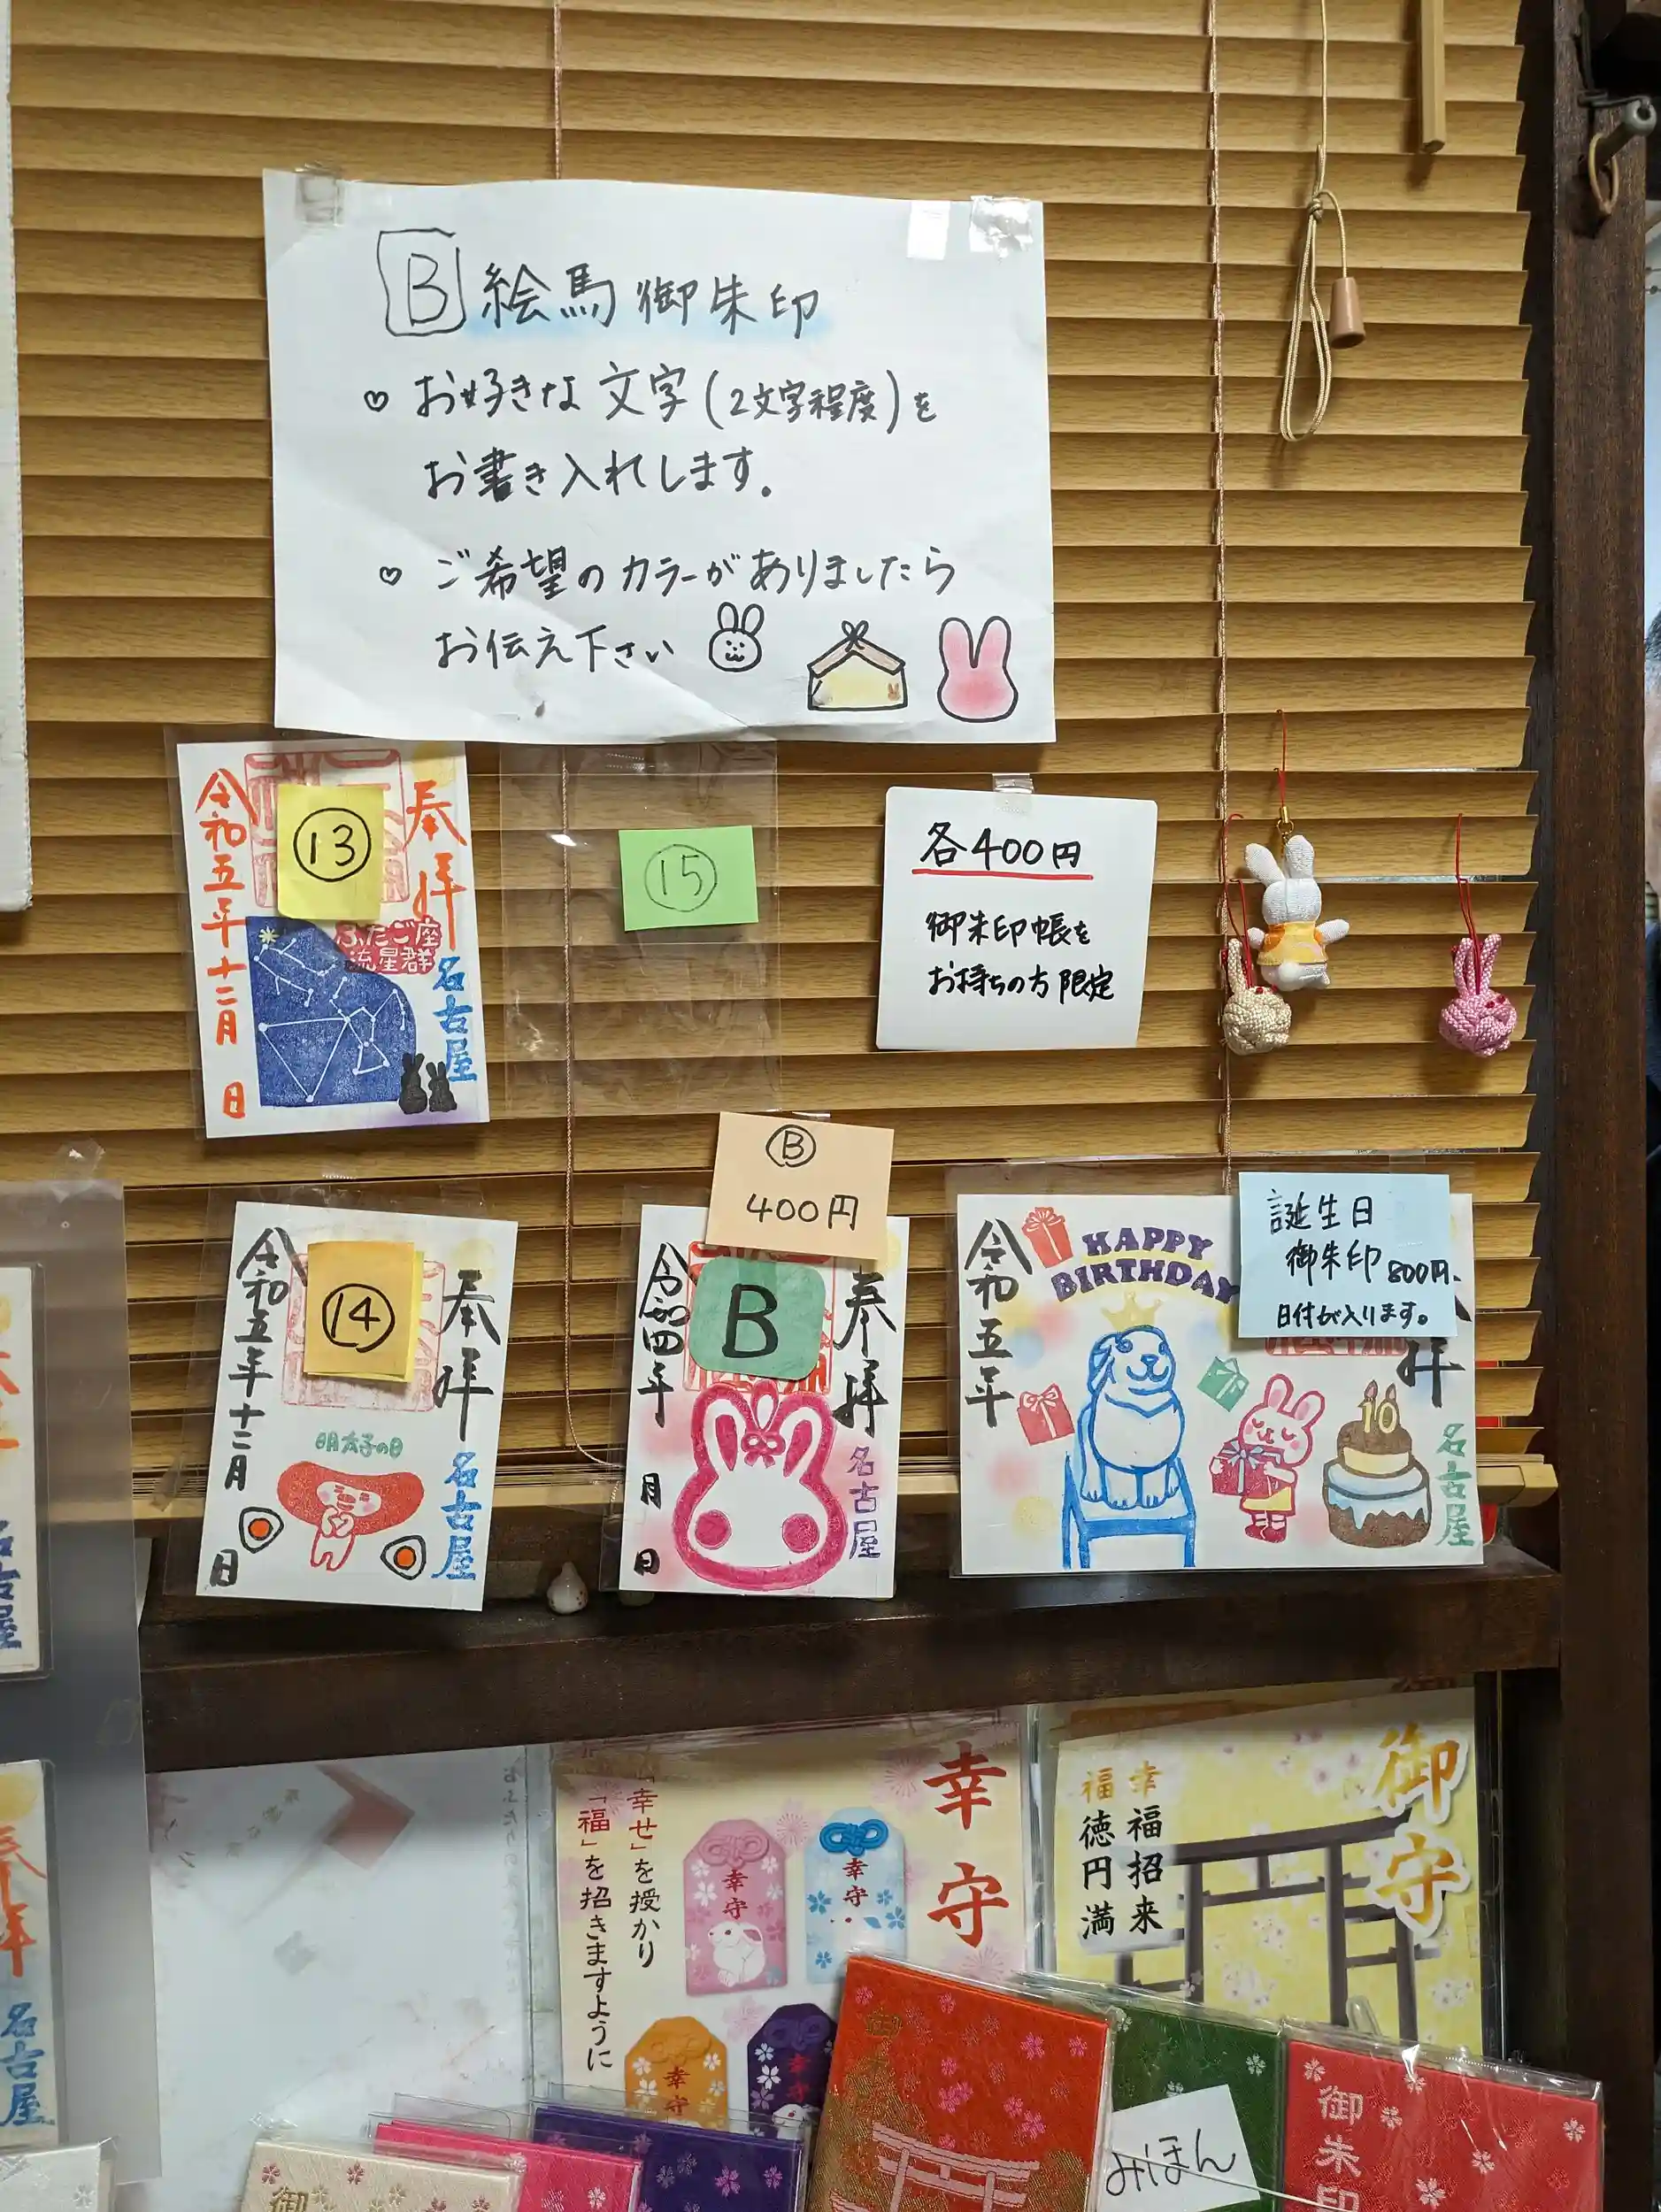 B 絵馬御朱印
♡ お好きな文字(2文字程度)を
お書き入れします。
♡ ご希望のカラーがありましたら
お伝え下さい
奉拝
⑬
令和五年十二月 日
ふたご座
流星群
名古屋
⑮
各400円
御朱印帳を
お持ちの方限定
奉拝
⑭
令和五年十二月 日
明太子の日
名古屋
Ⓑ
400円
B
奉拝
令和四年 月 日
名古屋
誕生日
御朱印 800円、
日付が入ります。
HAPPY
BIRTHDAY
令和五年
拝
10
名古屋
名古屋
奉拝
名古屋
幸守
「幸せ」を授かり
「福」を招きますように
幸守
幸守
幸守
幸守
御守
幸福招来
福徳円満
みほん
御朱印
御